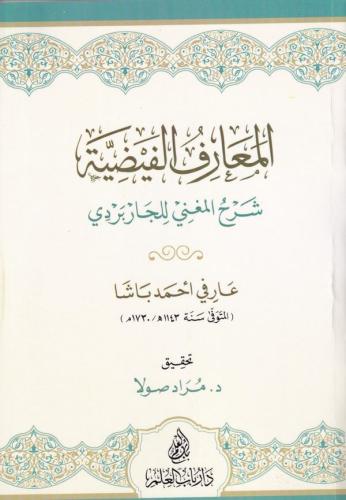 المعارف الفيضية
شرح المغني للجاربردي
عارفي احمد باشا
(المتوفى سنة ١١٤٣ه/١٧٣٠م)
تحقيق
د. مراد صولا
دار باب العلم